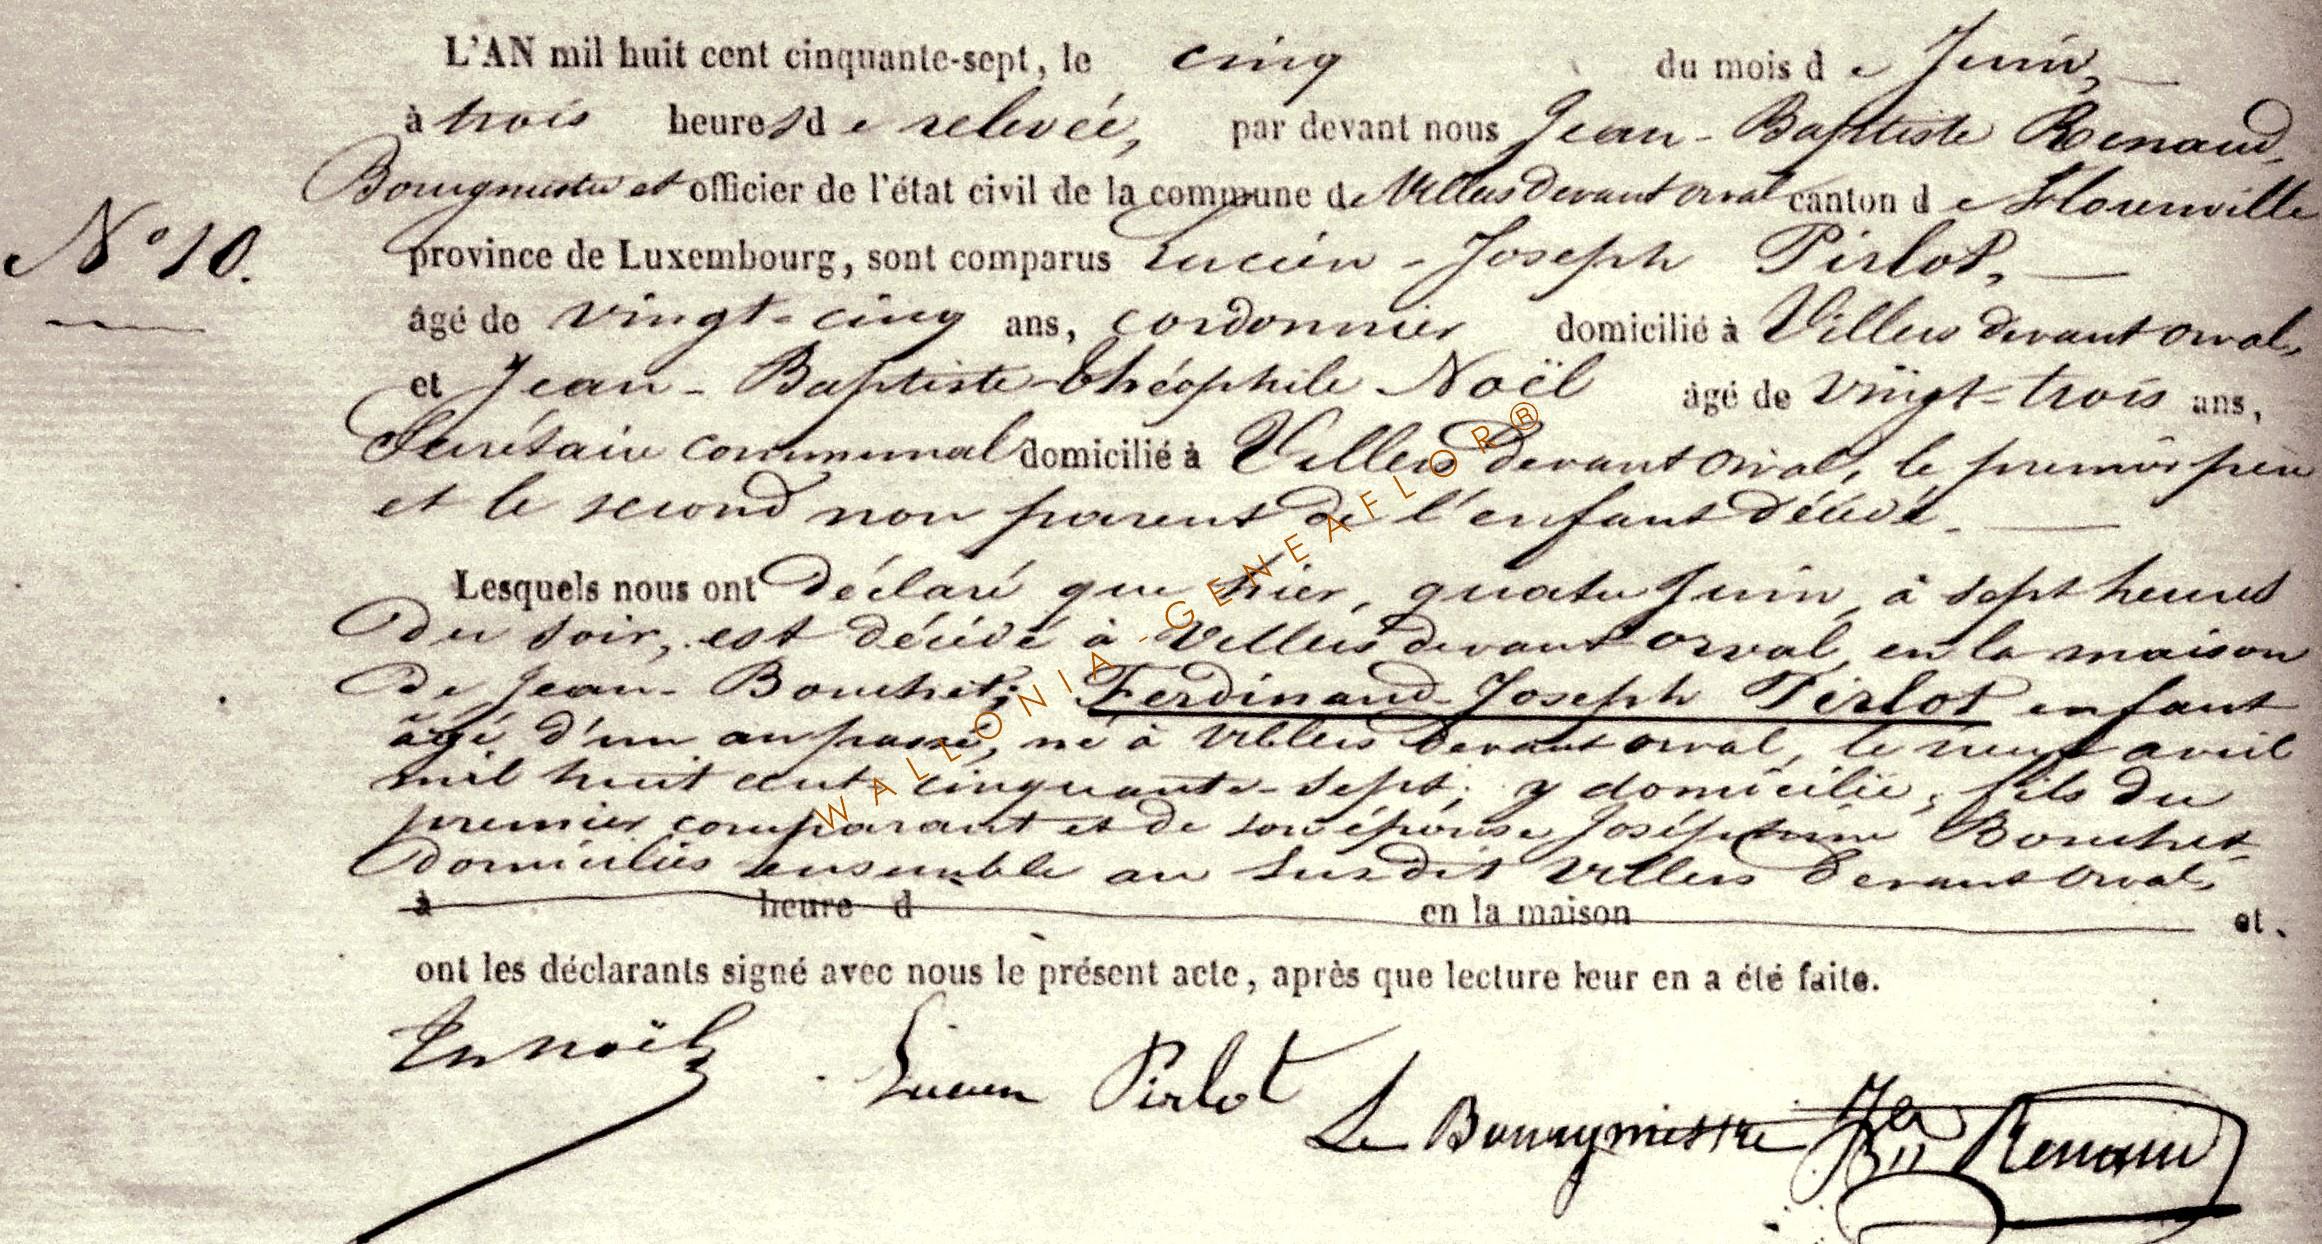 L'AN mil huit cent cinquante-sept, le cinq du mois de Juin,
à trois heures de relevée, par devant nous Jean-Baptiste Renaud,
Bourgmestre et officier de l'état civil de la commune de Villers devant orval canton de Florenville
N° 10.
province de Luxembourg, sont comparus Lucien-Joseph Pirlot,
âgé de vingt-cinq ans, cordonnier domicilié à Villers devant orval,
et Jean-Baptiste Théophile Noël âgé de vingt-trois ans,
Secrétaire communal domicilié à Villers devant Orval, le premier père
et le second non parent de l'enfant décédé.
Lesquels nous ont déclaré que hier, quatre Juin, à sept heures
du soir, est décédé à Villers devant orval, en la maison
de Jean-Bouchet; Ferdinand-Joseph Pirlot enfant
âgé d'un an passé, né à Villers devant orval, le neuf avril
mil huit cent cinquante-sept; y domicilié; fils du
premier comparant et de son épouse Joséphine Bouchet
domiciliés ensemble au susdit Villers devant Orval,
à heure d en la maison et.
ont les déclarants signé avec nous le présent acte, après que lecture leur en a été faite.
Noël
Lucien Pirlot
Le Bourgmestre JB Renaud
WALLONIA-GENEAFLOR®